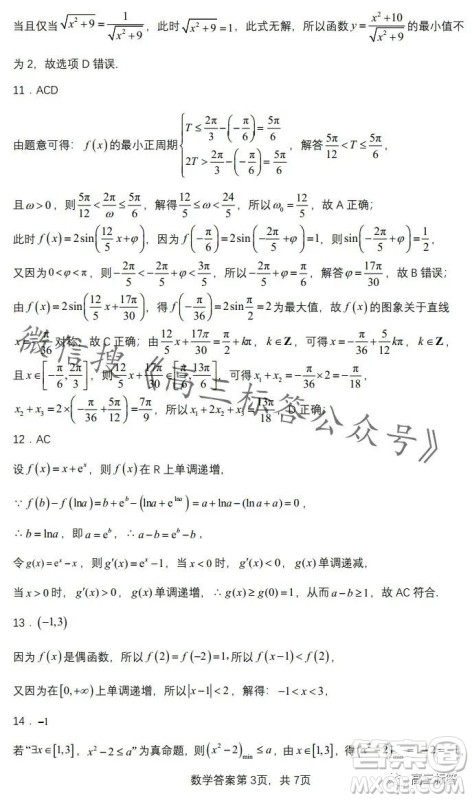 当且仅当√(x²+9)=1/√(x²+9)，此时√(x²+9)=1，此式无解，所以函数y=(x²+10)/√(x²+9)的最小值不
为 2，故选项 D 错误.
11．ACD
由题意可得：f(x)的最小正周期{T≤2π/3−(−π/6)=5π/6, 2T>2π/3−(−π/6)=5π/6，解答5π/12<T≤5π/6，
且ω>0，则5π/12<2π/ω≤5π/6，解得12/5≤ω<24/5，所以ω₀=12/5，故 A 正确；
此时f(x)=2sin(12/5x+φ)，因为f(π/6)=2sin(−2π/5+φ)=1，则sin(−2π/5+φ)=1/2，
又因为0<φ<π，则−2π/5<−2π/5+φ<3π/5，所以−2π/5+φ=π/6，解答φ=17π/30，故 B 错误；
由f(x)=2sin(12/5x+17π/30)，得f(−π/36)=2sinπ/2=2为最大值，故f(x)的图象关于直线
x=−π/36对称，故 C 正确；由12/5x+17π/30=π/2+kπ，k∈Z，可得x=−π/36+5/12kπ，k∈Z，
且x∈[−π/6,2π/3]，则12/5x+17π/30∈[π/6,13π/6]，可得x₁+x₂=−π/36×2=−π/18，
x₂+x₃=2×(−π/36+5π/12)=7π/9，所以x₁+2x₂+x₃=13π/18，D 正确；
12．AC
设f(x)=x+eˣ，则f(x)在 R 上单调递增，
∵f(b)−f(lna)=b+eᵇ−(lna+e^(lna))=a+lna−(lna+a)=0，
∴b=lna，即a=eᵇ，∴a−b=eᵇ−b，
令g(x)=eˣ−x，则g′(x)=eˣ−1，当x<0时，g′(x)<0，g(x)单调递减，
当x>0时，g′(x)>0，g(x)单调递增，∴g(x)≥g(0)=1，从而a−b≥1，故 AC 符合.
13．(−1,3)
因为f(x)是偶函数，所以f(2)=f(−2)=1，所以f(x−1)<f(2)，
又因为在[0,+∞)上单调递增，所以|x−1|<2，解得：−1<x<3，
14．−1
若“∃x∈[1,3]，x²−2≤a”为真命题，则(x²−2)min≤a，由x∈[1,3]，得(x²−2)min=1−2=−1，
数学答案第 3页，共 7页
微信搜《高三标答公众号》
答案圈
高三标答